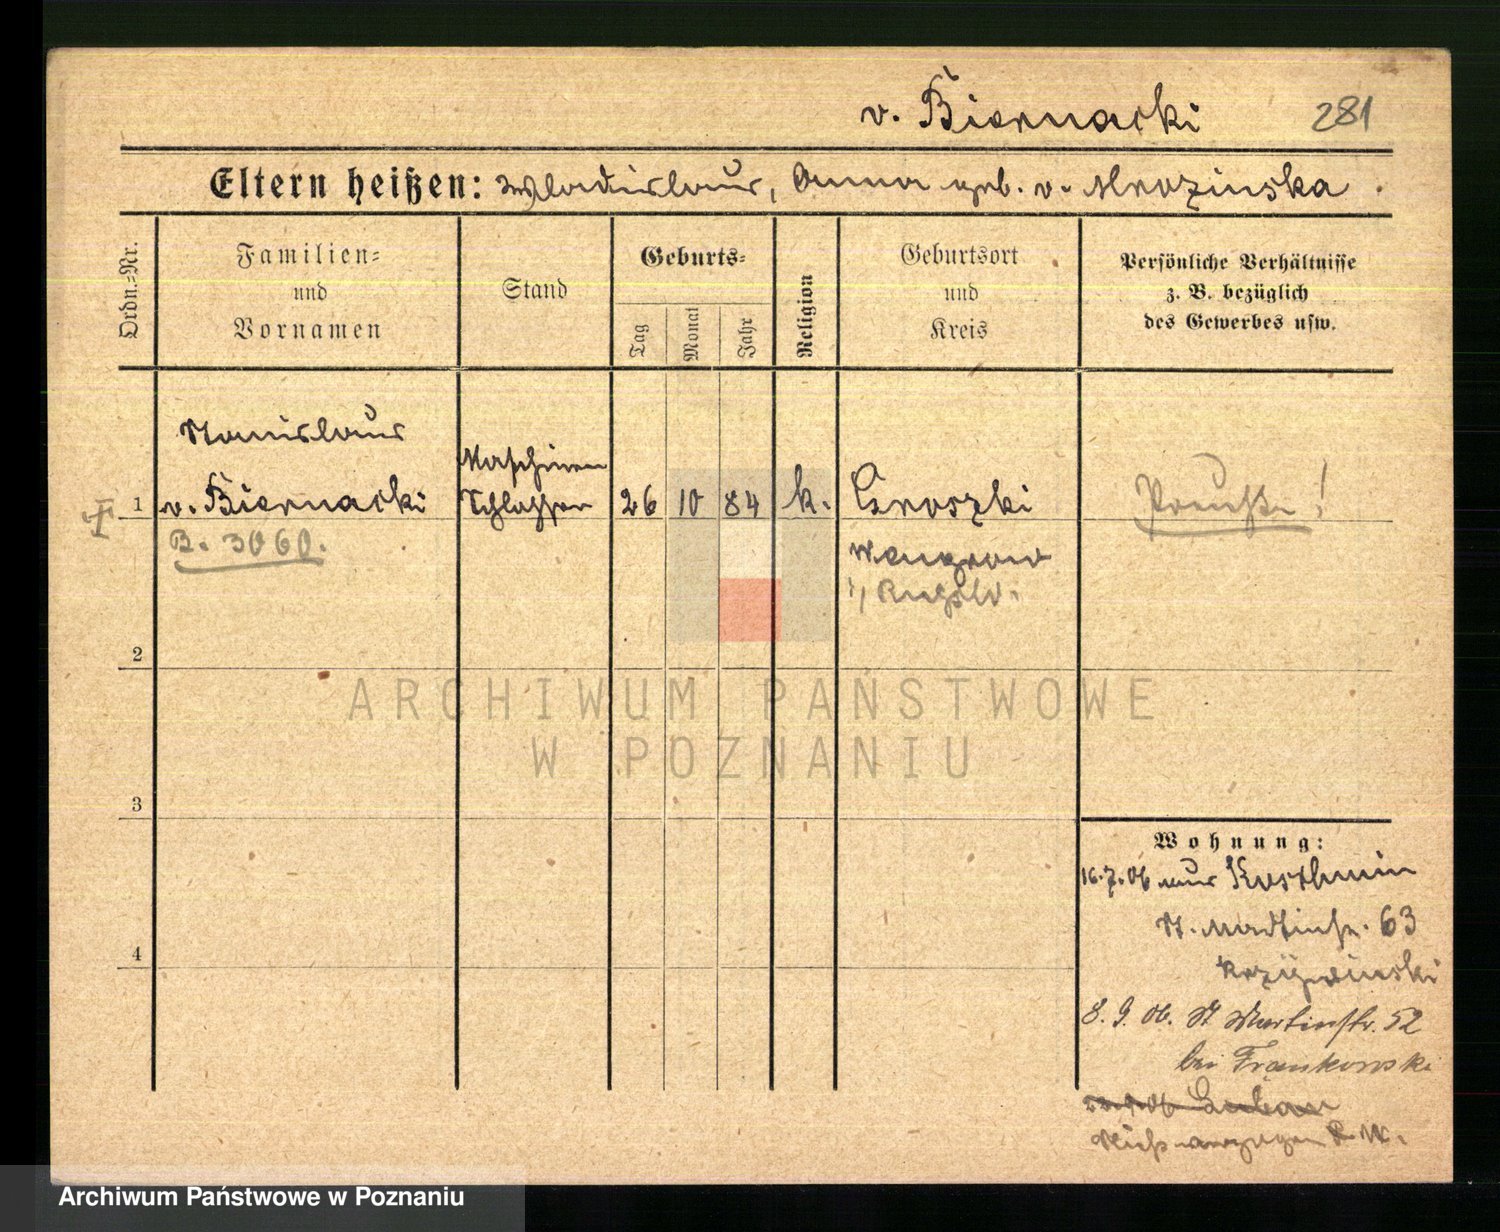 v. Biernacki 281
Eltern heißen: Wladislaus, Anna geb. v. Mrozinska.
Ordn.-Nr.
Familien-
und
Vornamen
Stand
Geburts-
Tag
Monat
Jahr
Religion
Geburtsort
und
Kreis
Persönliche Verhältnisse
z. B. bezüglich
des Gewerbes usw.
Stanislaus
1 v. Biernacki
B. 3060.
Maschinen
Schlosser
26 10 84 k.
Wongrow
Preuße!
2
3
4
ARCHIWUM PAŃSTWOWE
W POZNANIU
Wohnung:
16.7.06 aus Koschmin
St. Martinstr. 63
8. 9. 06. St Martinstr. 52
bei Frankowski
Archiwum Państwowe w Poznaniu